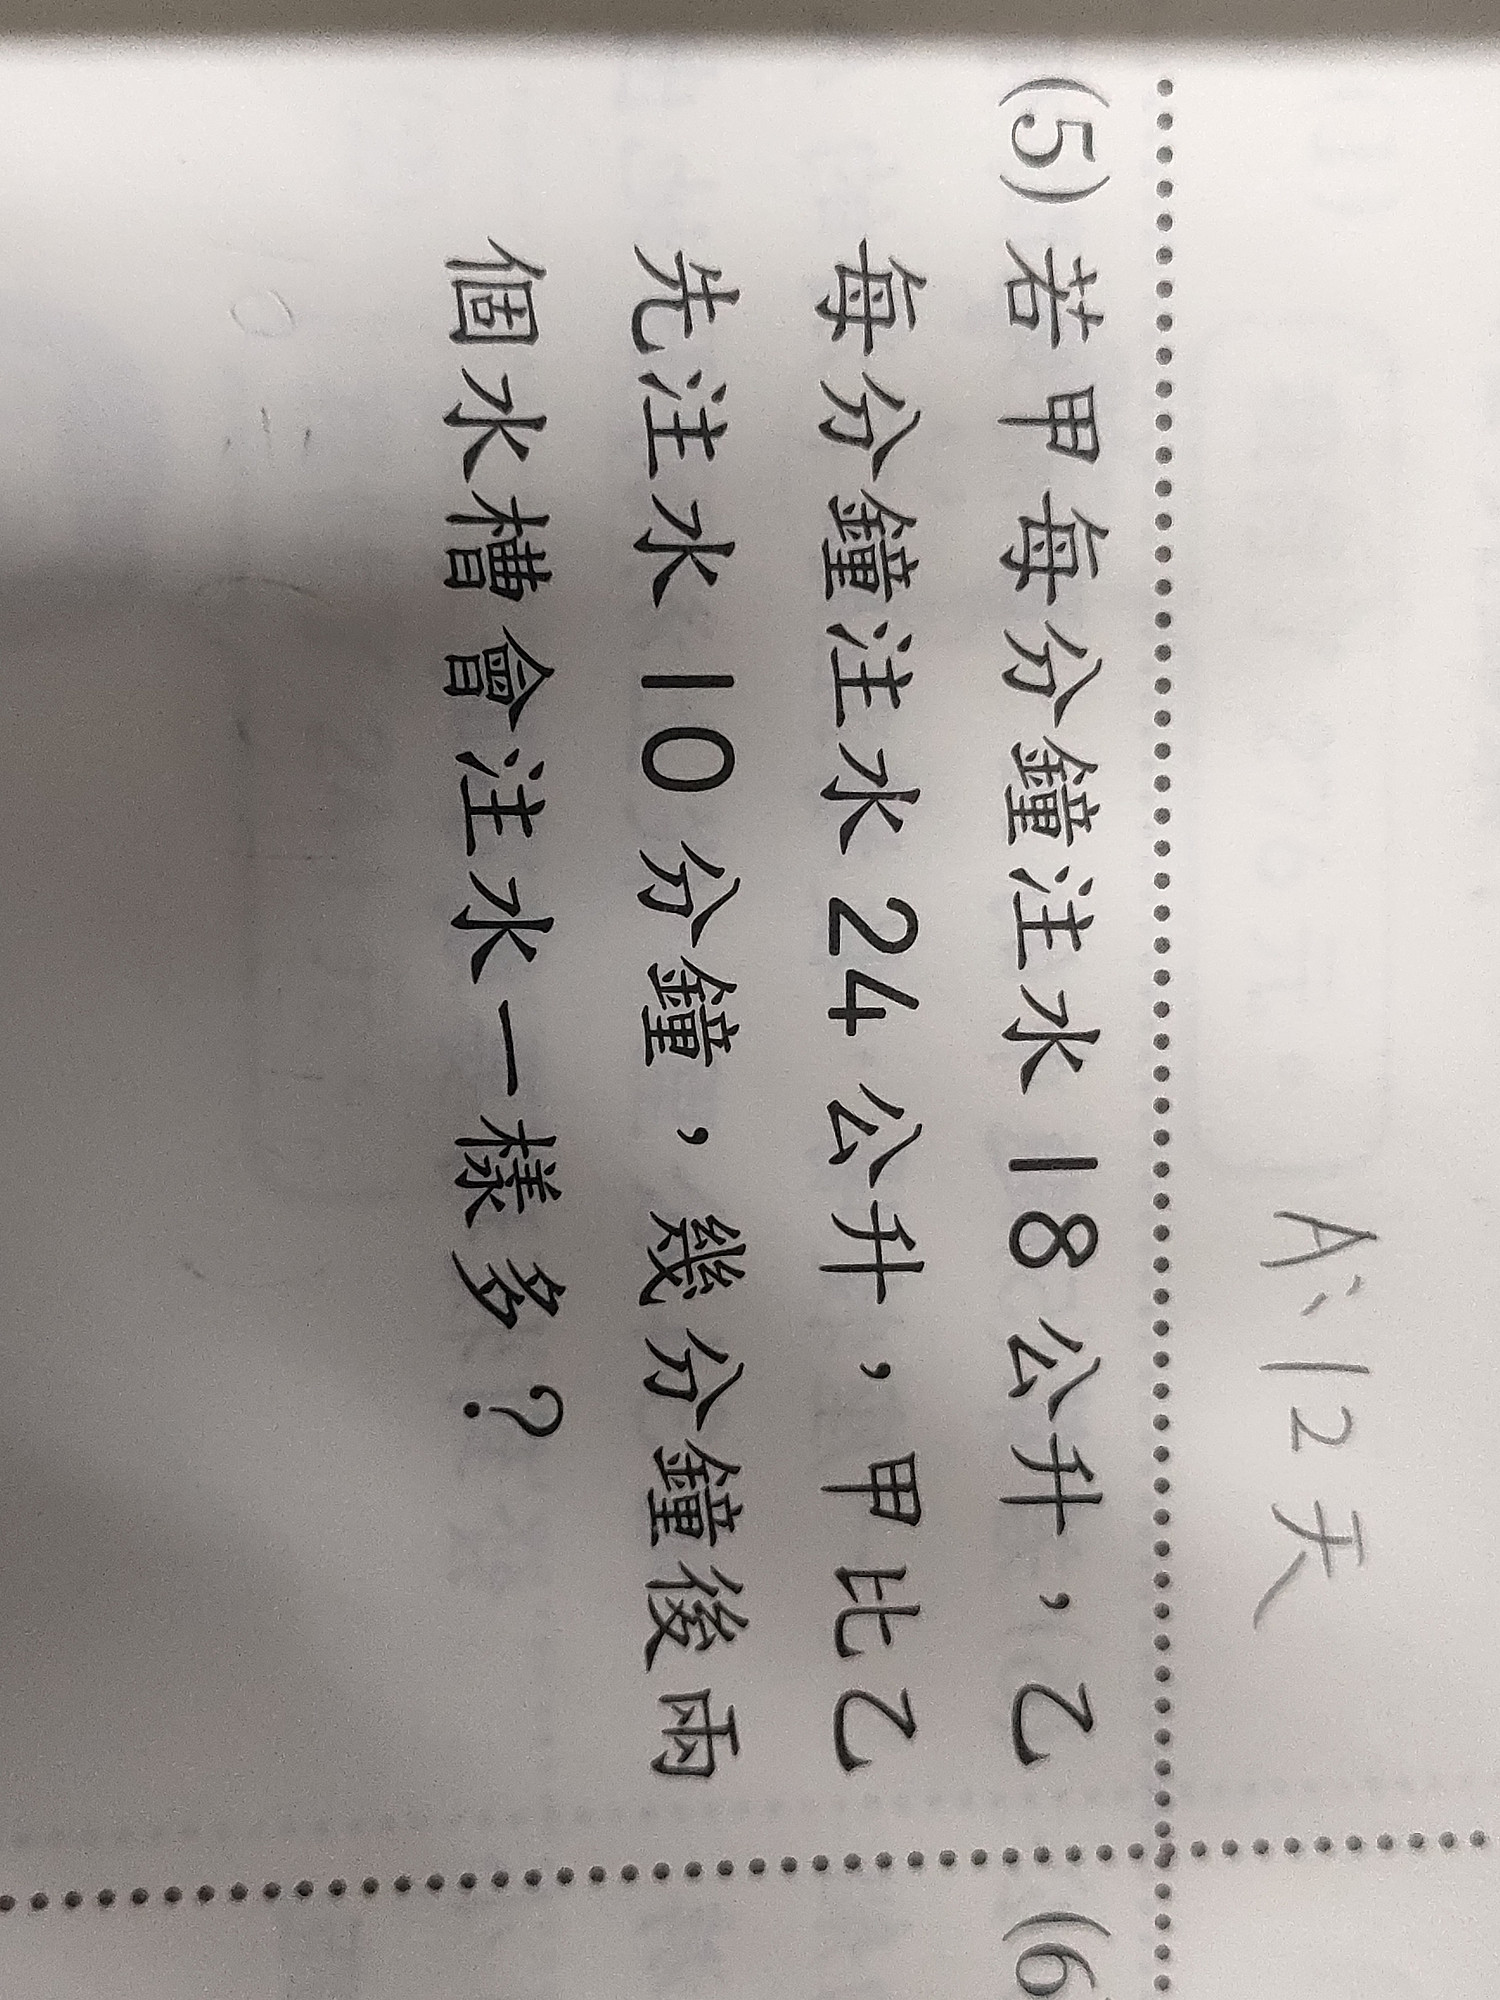 A:12天
(5) 若甲每分鐘注水 18 公升，乙
每分鐘注水 24 公升，甲比乙
先注水 10 分鐘，幾分鐘後兩
個水槽會注水一樣多？
(6